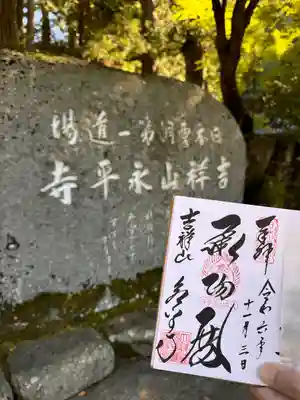 日本曹洞第一道場
吉祥山永平寺
奉拝 令和六年
十一月三日
承陽殿
吉祥山
永平寺